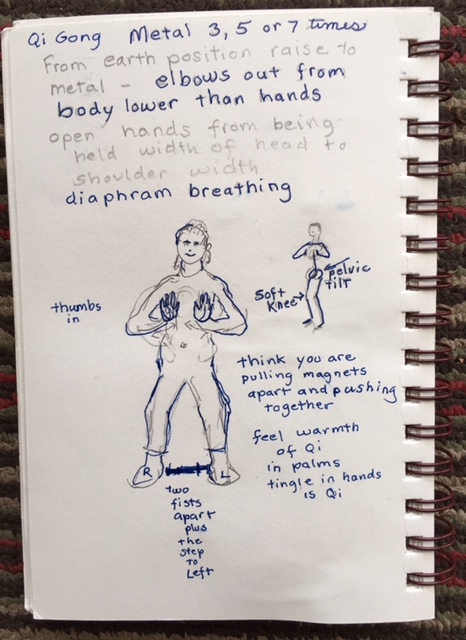 Qi Gong Metal 3, 5 or 7 times
From earth position raise to
metal - elbows out from
body lower than hands
open hands from being
held width of head to
shoulder width
diaphram breathing
thumbs
in
pelvic
tilt
Soft
Knee
think you are
pulling magnets
apart and pushing
together
feel warmth
of Qi
in palms
tingle in hands
is Qi
R
L
two
fists
apart
plus
the
step
to
Left